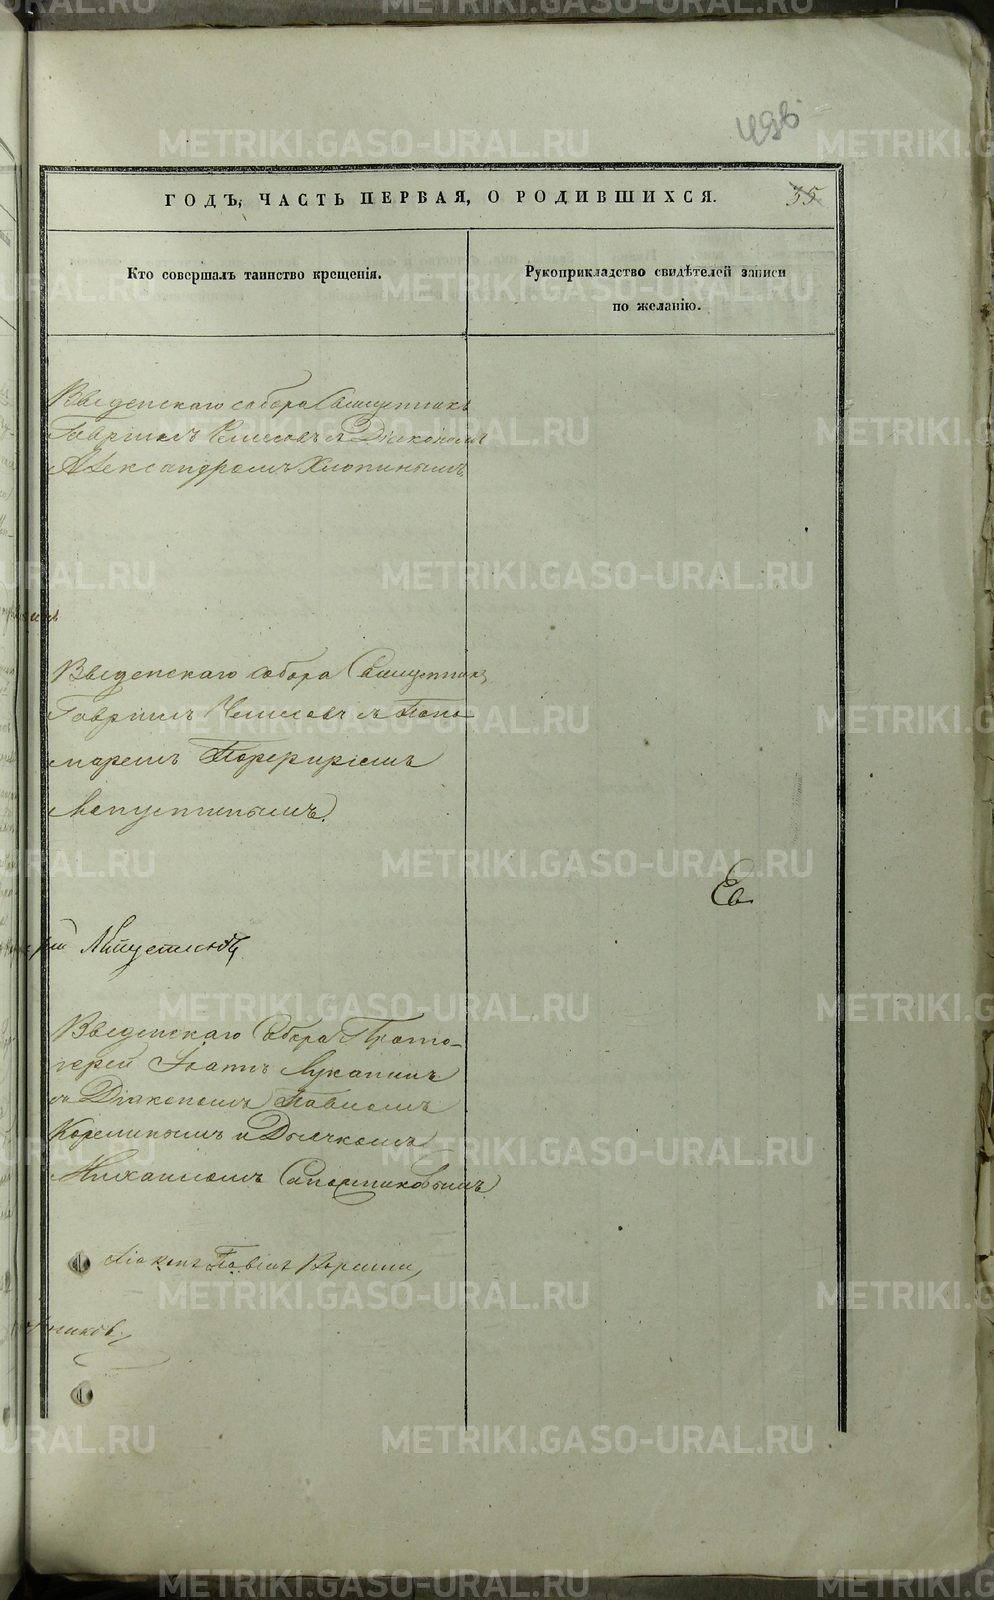 496
ГОДЪ, ЧАСТЬ ПЕРВАЯ, О РОДИВШИХСЯ. 35
Кто совершалъ таинство крещенія.
Рукоприкладство свидѣтелей записи
по желанію.
Введенскаго собора Священникъ
Гавріилъ съ Діакономъ
Александромъ Хлопинымъ
Введенскаго собора Священникъ
Гавріилъ съ Поно-
маремъ Порфиріемъ
Капустинымъ.
Капустинъ
Введенскаго Собора Прото-
іерей Іоаннъ Луканинъ
съ Діакономъ Павломъ
и Дьячкомъ
Михаиломъ Сапожниковымъ
Діаконъ Павелъ
METRIKI.GASO-URAL.RU